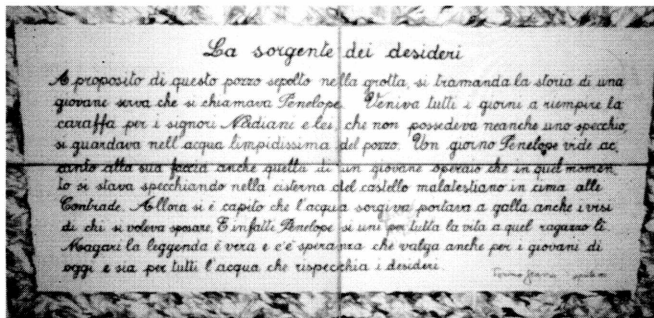 La sorgente dei desideri
A proposito di questo pozzo sepolto nella grotta, si tramanda la storia di una
giovane serva che si chiamava Penelope. Veniva tutti i giorni a riempire la
caraffa per i signori Nadiani e lei, che non possedeva neanche uno specchio,
si guardava nell'acqua limpidissima del pozzo. Un giorno Penelope vide ac,
canto alla sua faccia anche quella di un giovane operaio che in quel momen,
to si stava specchiando nella cisterna del castello malatestiano in cima alle
Contrade. Allora si è capito che l'acqua sorgiva portava a galla anche i visi
di chi si voleva sposare. E infatti Penelope si unì per tutta la vita a quel ragazzo lì.
Magari la leggenda è vera e c'è speranza che valga anche per i giovani di
oggi e sia per tutti l'acqua che rispecchia i desideri.